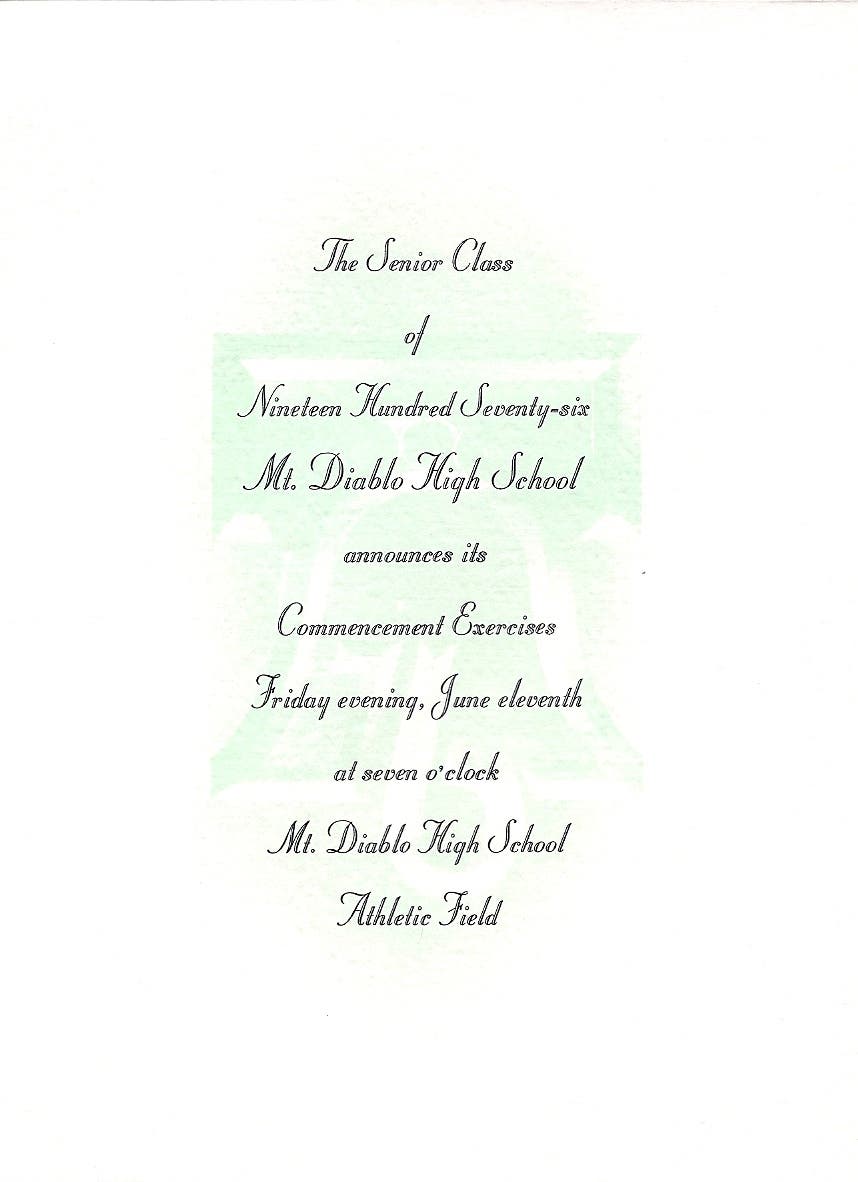 The Senior Class
of
Nineteen Hundred Seventy-six
Mt. Diablo High School
announces its
Commencement Exercises
Friday evening, June eleventh
at seven o'clock
Mt. Diablo High School
Athletic Field